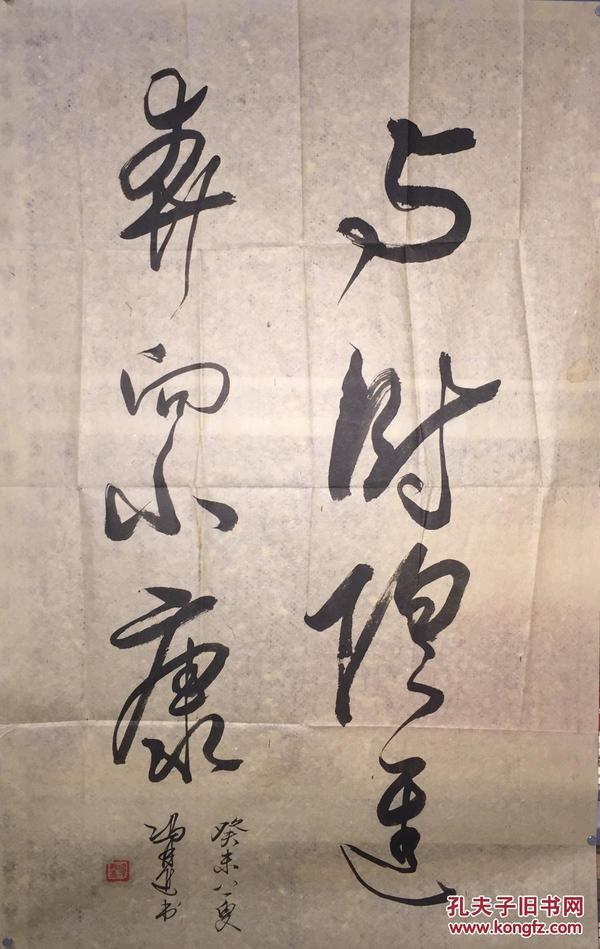 与时俱进
奔向小康
癸未
冯书
孔夫子旧书网
www.kongfz.com